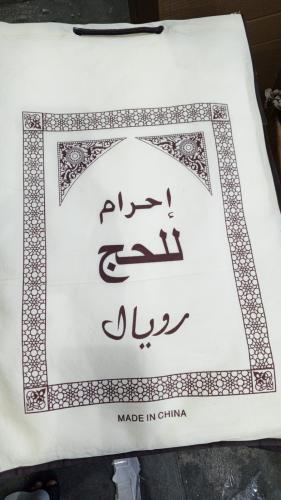 إحرام
للحج
رويال
MADE IN CHINA